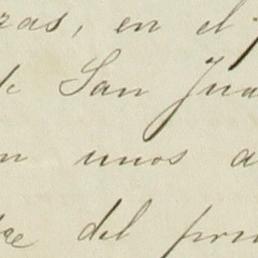 ras, en el
de San Jua
n unos a
del prim